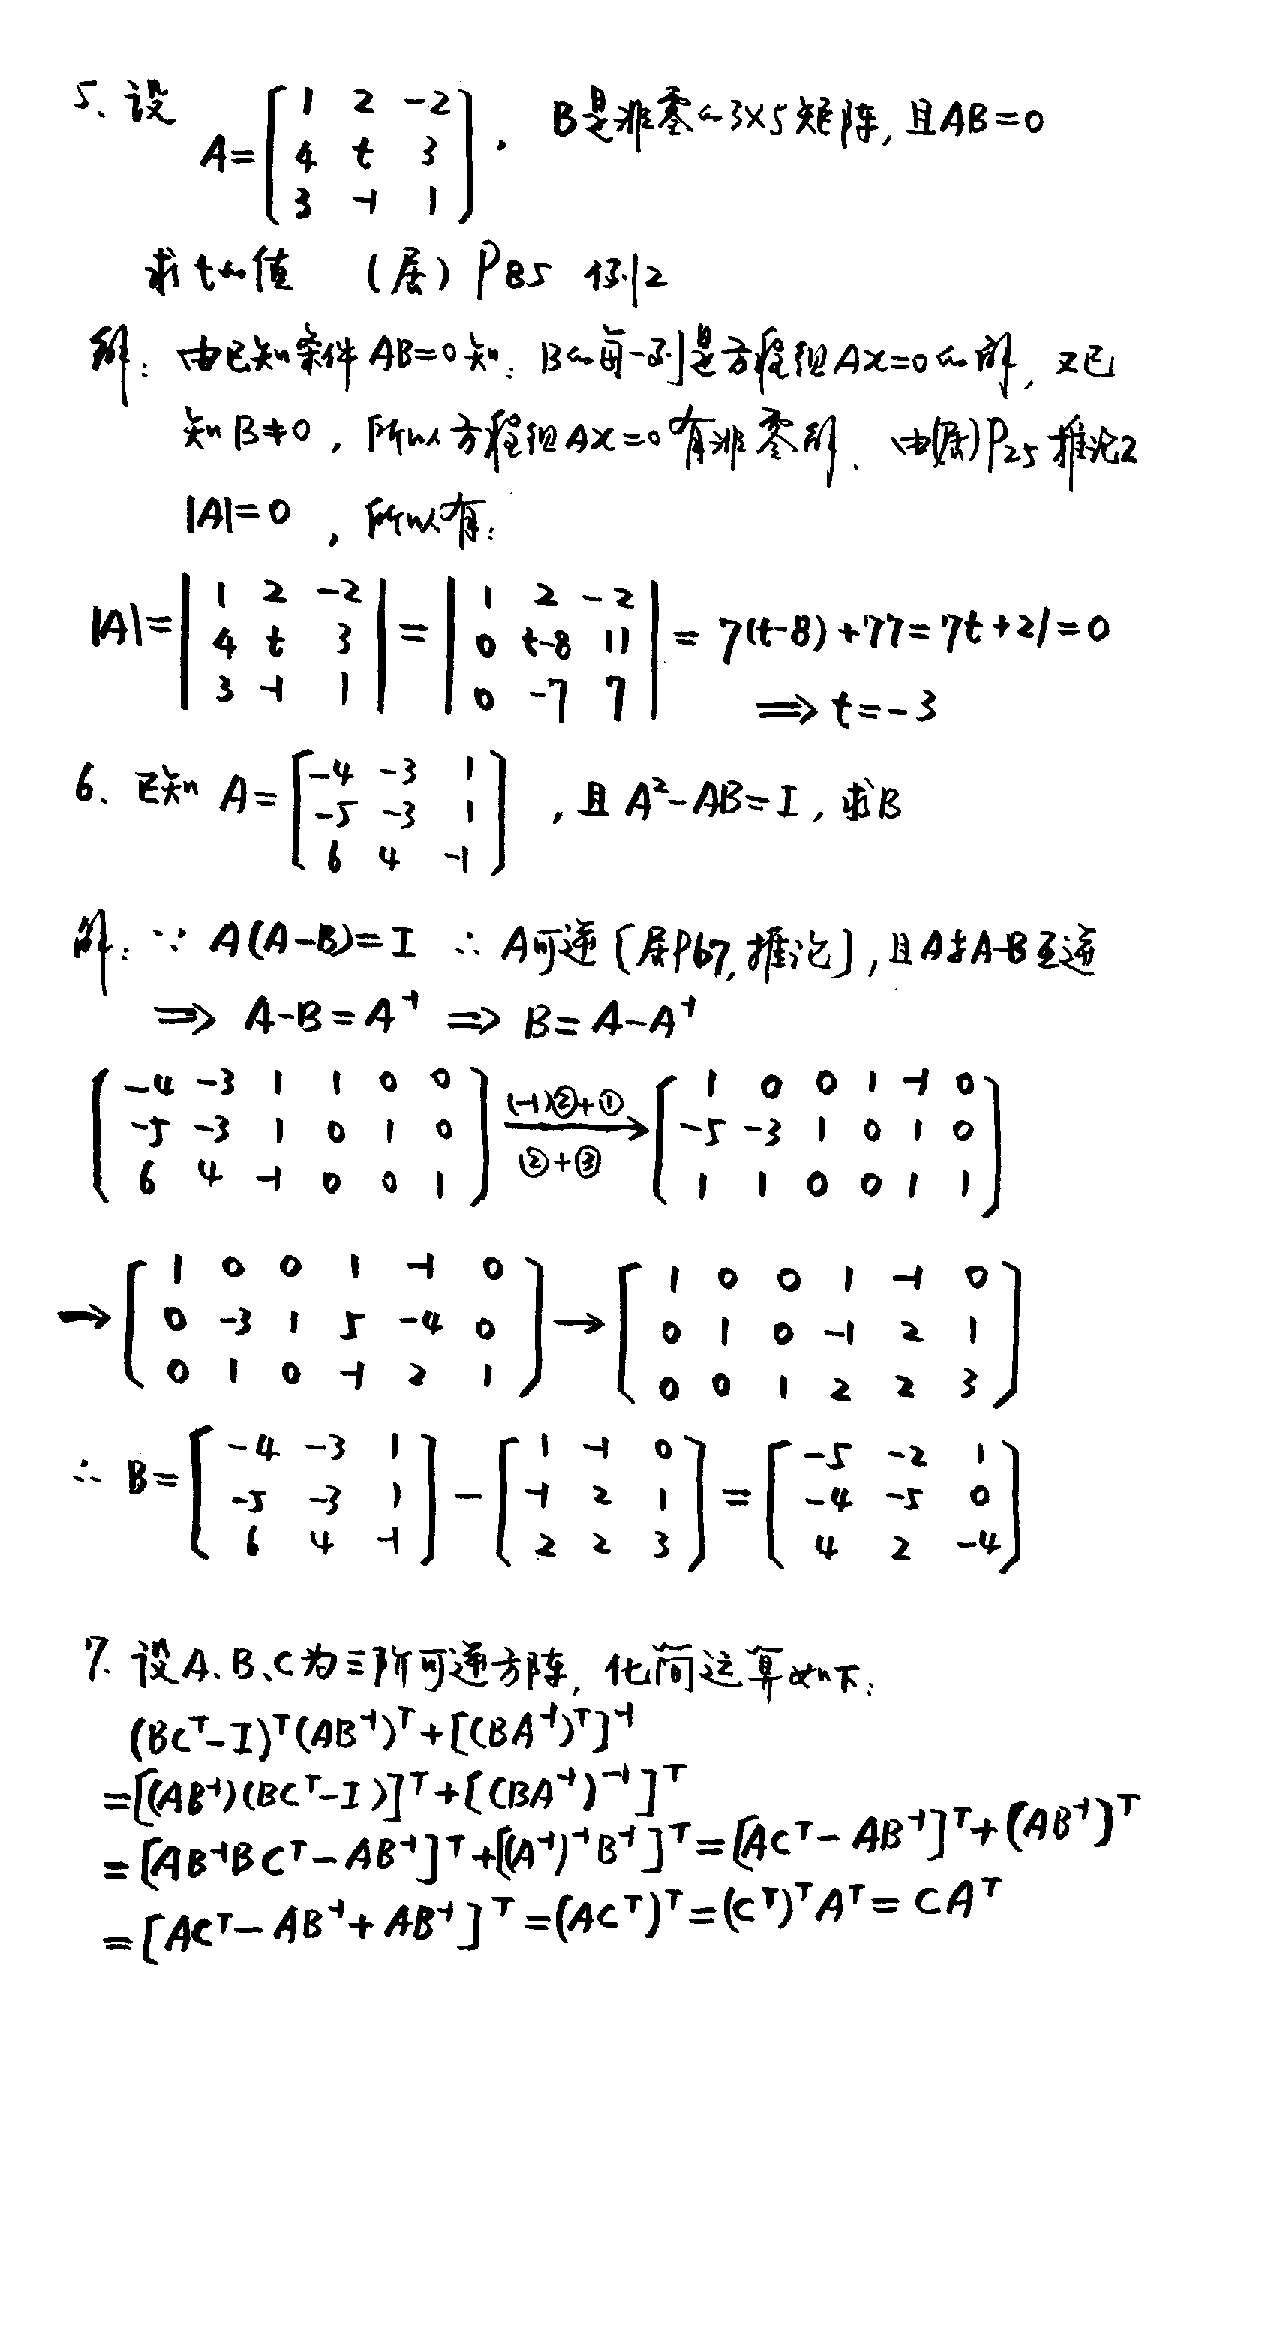 5、设 A=[1 2 -2; 4 t 3; 3 -1 1], B是非零的3×5矩阵, 且AB=0
求t的值 (居) P85 例2
解: 由已知条件AB=0知: B的每一列是方程组AX=0的解, 又已
知B≠0, 所以方程组AX=0有非零解. 由(居)P25推论2
|A|=0, 所以有:
|A|=|1 2 -2; 4 t 3; 3 -1 1|=|1 2 -2; 0 t-8 11; 0 -7 7|=7(t-8)+77=7t+21=0
⟹ t=-3
6、已知 A=[-4 -3 1; -5 -3 1; 6 4 -1], 且A²-AB=I, 求B
解: ∵ A(A-B)=I ∴ A可逆[居P67,推论], 且A与A-B互逆
⟹ A-B=A⁻¹ ⟹ B=A-A⁻¹
[-4 -3 1 1 0 0; -5 -3 1 0 1 0; 6 4 -1 0 0 1] (-1)②+① ②+③ → [1 0 0 1 -1 0; -5 -3 1 0 1 0; 1 1 0 0 1 1]
→[1 0 0 1 -1 0; 0 -3 1 5 -4 0; 0 1 0 -1 2 1]→[1 0 0 1 -1 0; 0 1 0 -1 2 1; 0 0 1 2 2 3]
∴ B=[-4 -3 1; -5 -3 1; 6 4 -1]-[1 -1 0; -1 2 1; 2 2 3]=[-5 -2 1; -4 -5 0; 4 2 -4]
7. 设A、B、C为三阶可逆方阵, 化简运算如下:
(BCᵀ-I)ᵀ(AB⁻¹)ᵀ+[(BA⁻¹)ᵀ]⁻¹
=[(AB⁻¹)(BCᵀ-I)]ᵀ+[(BA⁻¹)⁻¹]ᵀ
=[AB⁻¹BCᵀ-AB⁻¹]ᵀ+[(A⁻¹)⁻¹B⁻¹]ᵀ=[ACᵀ-AB⁻¹]ᵀ+(AB⁻¹)ᵀ
=[ACᵀ-AB⁻¹+AB⁻¹]ᵀ=(ACᵀ)ᵀ=(Cᵀ)ᵀAᵀ=CAᵀ